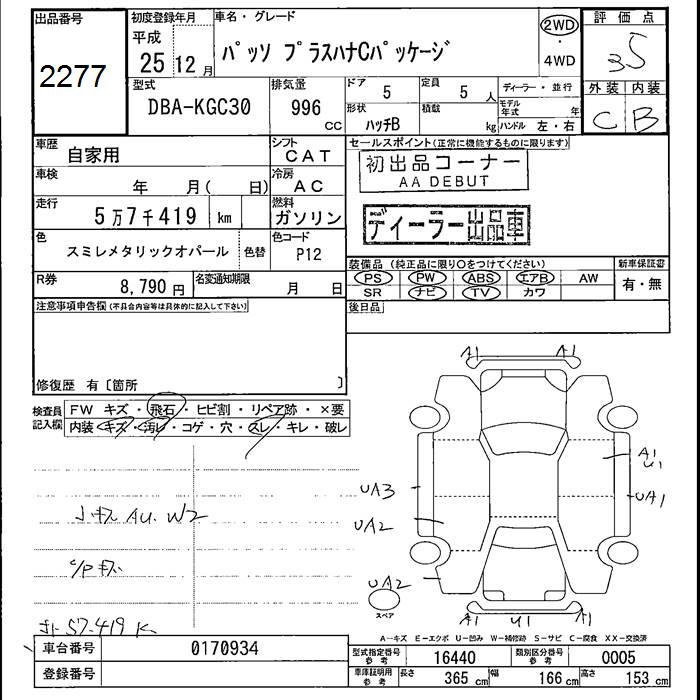 出品番号
2277
初度登録年月
平成
25 12 月
車名・グレード
パッソ プラスハナCパッケージ
2WD
・
4WD
評価点
3.5
外装 内装
C B
型式
DBA-KGC30
排気量
996
CC
ドア
5
定員
5 人
ディーラー・並行
形状
ハッチB
積載
kg
モデル年式 年
ハンドル 左・右
車歴
自家用
シフト
CAT
車検
年 月( 日)
冷房
AC
走行
5万7千419 km
燃料
ガソリン
色
スミレメタリックオパール
色替
色コード
P12
R券
8,790 円
名変通知期限
月 日
セールスポイント(正常に機能するものに限ります)
初出品コーナー
AA DEBUT
ディーラー出品車
装備品(純正品に限り○をつけてください)
PS PW ABS エアB AW
SR ナビ TV カワ
新車保証書
有・無
後日品
注意事項申告欄(不具合内容等は具体的に記入して下さい)
修復歴 有〔箇所 〕
検査員記入欄
FW キズ・飛石・ヒビ割・リペア跡・×要
内装・キズ・汚レ・コゲ・穴・スレ・キレ・破レ
小キズ AU. W2
C/P キズ
57.419 K
A1 A1
A1
U1
UA3
UA1
UA2
UA2
スペア
A1 U1 A1
A-キズ E-エクボ U-凹み W-補修跡 S-サビ C-腐食 XX-交換済
車台番号
0170934
登録番号
型式指定番号
参考
16440
類別区分番号
参考
0005
車庫証明用
参考
長さ 365 cm
幅 166 cm
高さ 153 cm